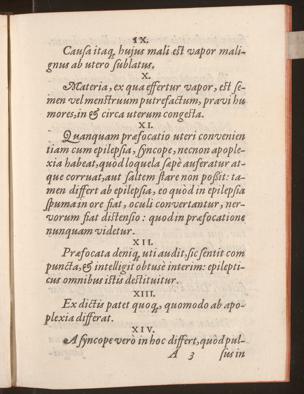 IX.
Causa itaq, hujus mali est vapor mali-
gnus ab utero sublatus.
X.
Materia, ex qua effertur vapor, est se-
men vel menstruum putrefactum, pravi hu
mores, in & circa uterum congesta.
XI.
Quanquam præfocatio uteri convenien
tiam cum epilepsia, syncope, necnon apople-
xia habeat, quòd loquela sæpè auferatur at-
que corruat, aut saltem stare non possit: ta-
men differt ab epilepsia, eo quòd in epilepsia
spuma in ore fiat, oculi convertantur, ner-
vorum fiat distensio: quod in præfocatione
nunquam videtur.
XII.
Præfocata deniq, uti audit, sic sentit com
puncta, & intelligit obtusè interim: epilepti-
cus omnibus istis destituitur.
XIII.
Ex dictis patet quoq, quomodo ab apo-
plexia differat.
XIV.
A syncope verò in hoc differt, quòd pul-
A 3 sus in